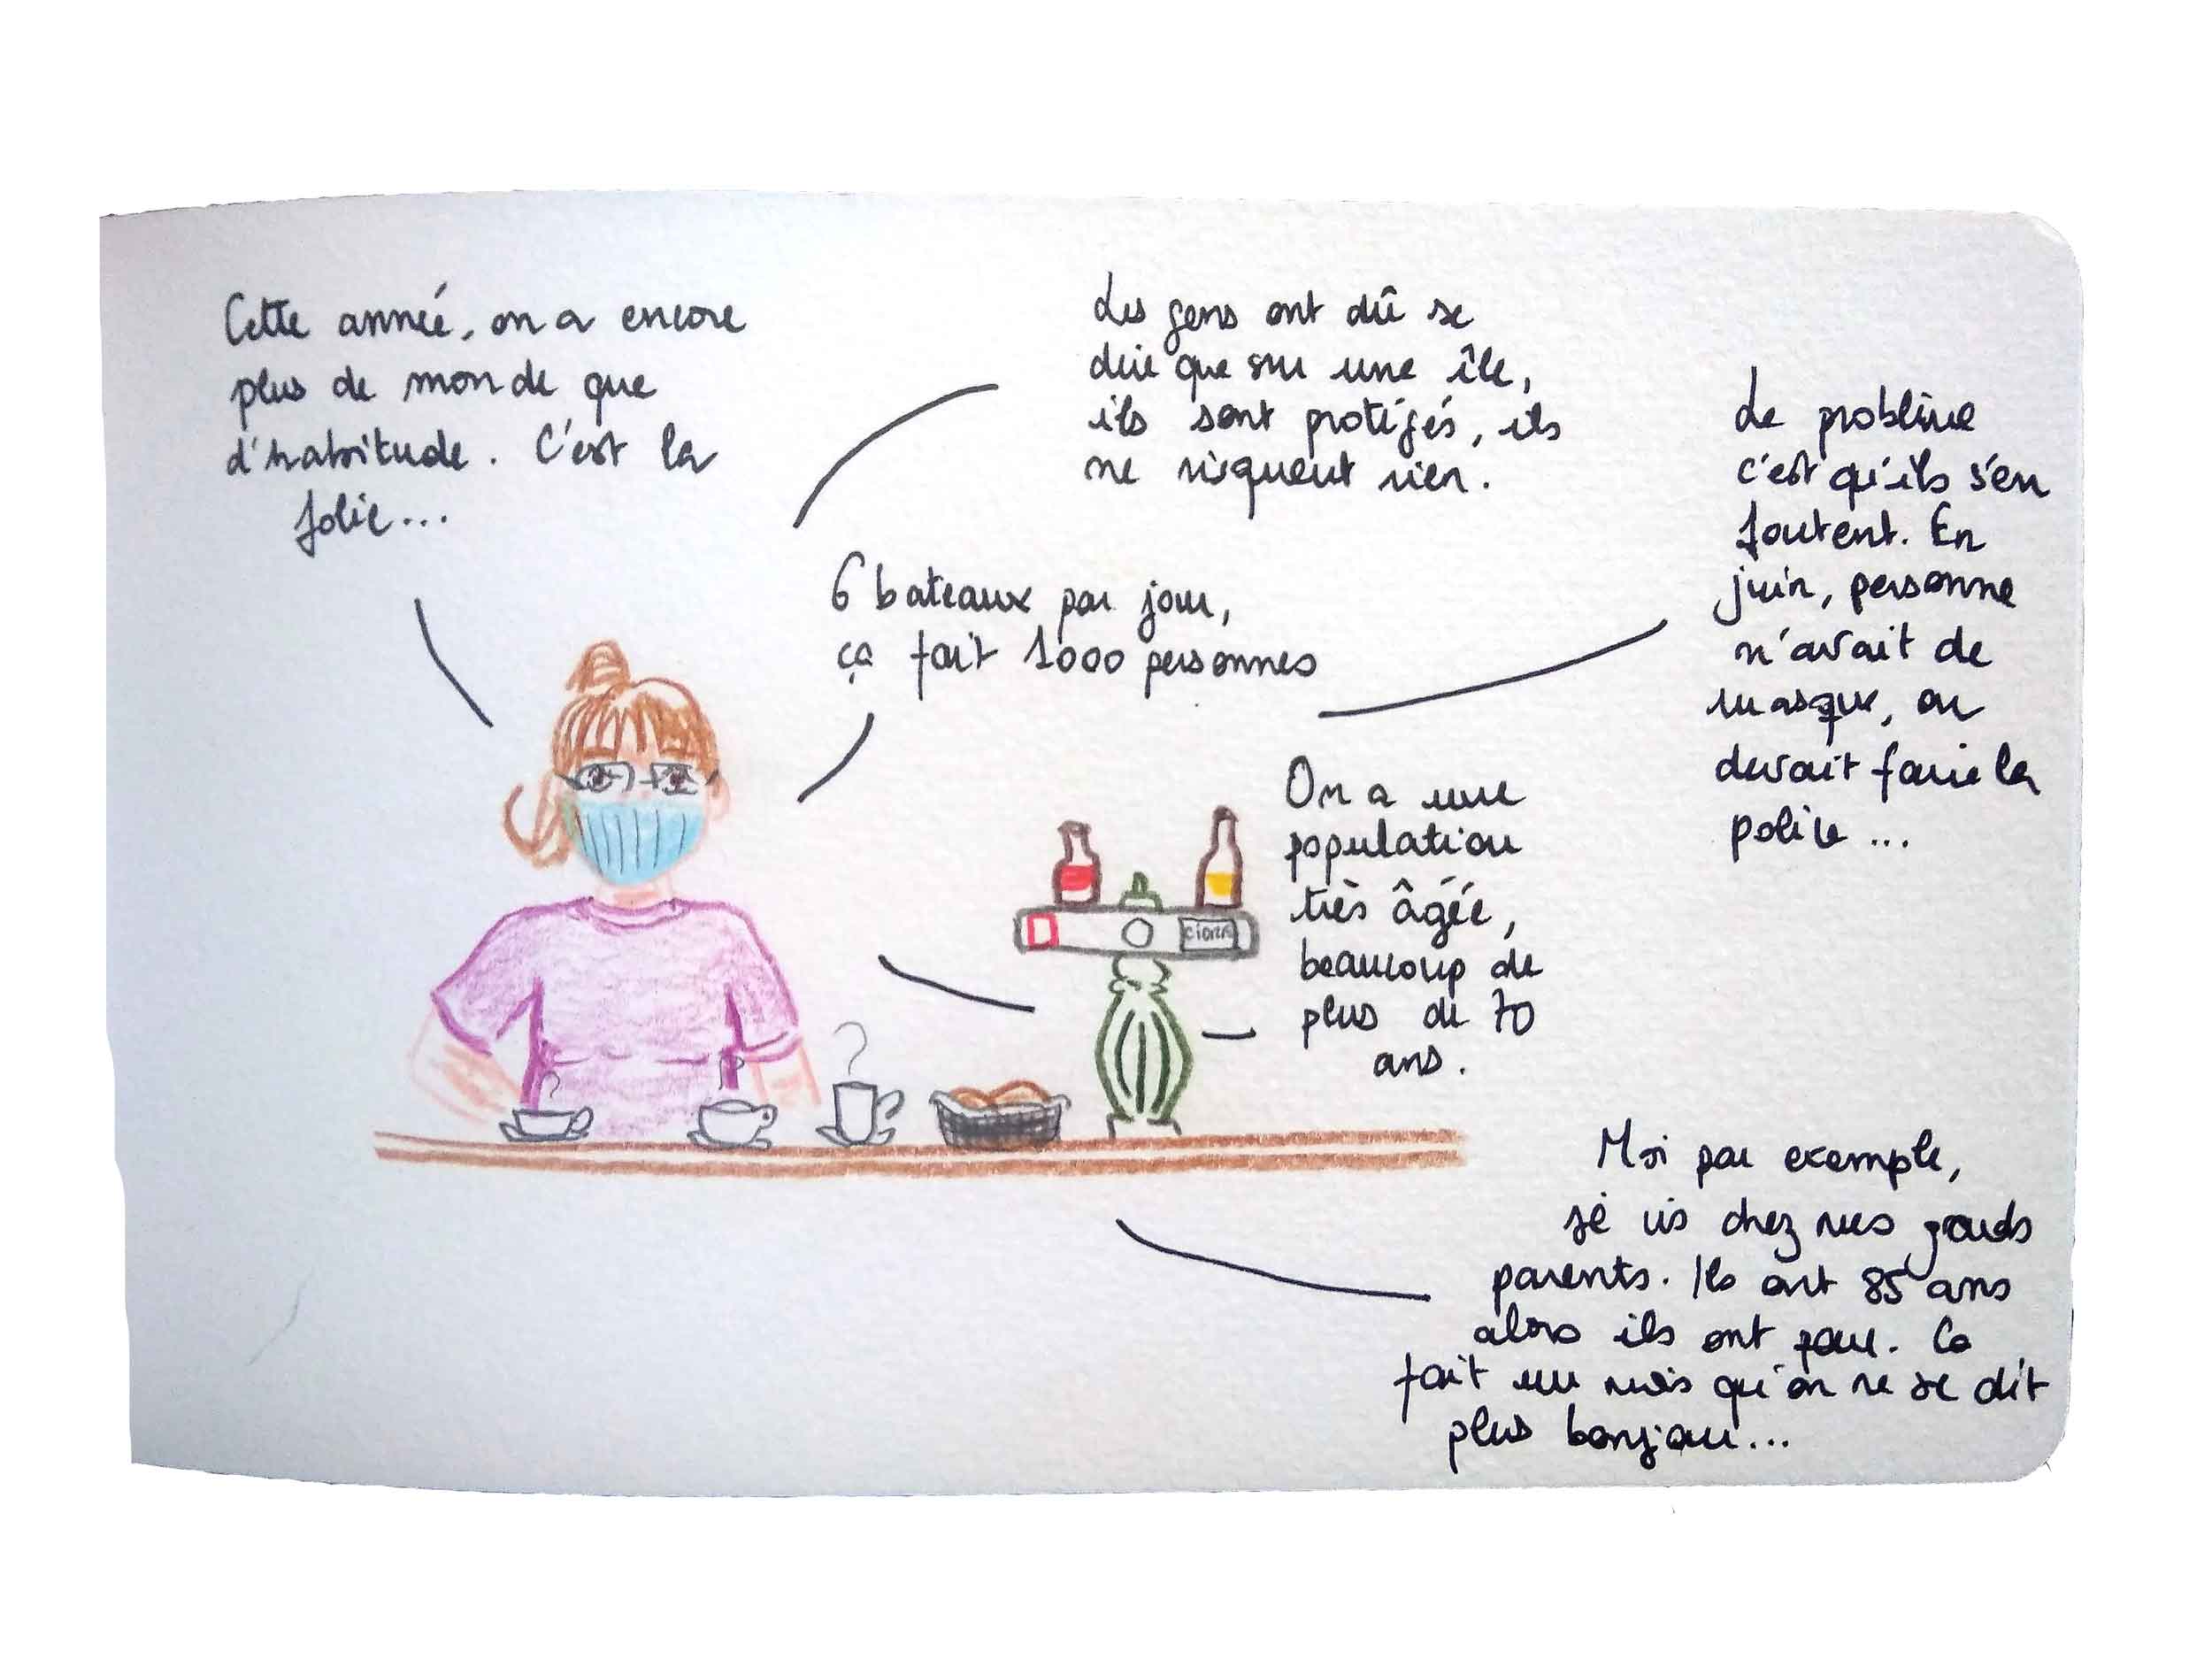 Cette année, on a encore
plus de monde que
d'habitude. C'est la
folie...
Les gens ont dû se
dire que sur une île,
ils sont protégés, ils
ne risquent rien.
6 bateaux par jour,
ça fait 1000 personnes
Le problème
c'est qu'ils s'en
foutent. En
juin, personne
n'avait de
masque, on
devait faire la
police...
On a une
population
très âgée,
beaucoup de
plus de 70
ans.
Moi par exemple,
je vis chez mes grands
parents. Ils ont 85 ans
alors ils ont peur. Ca
fait un mois qu'on ne se dit
plus bonjour...